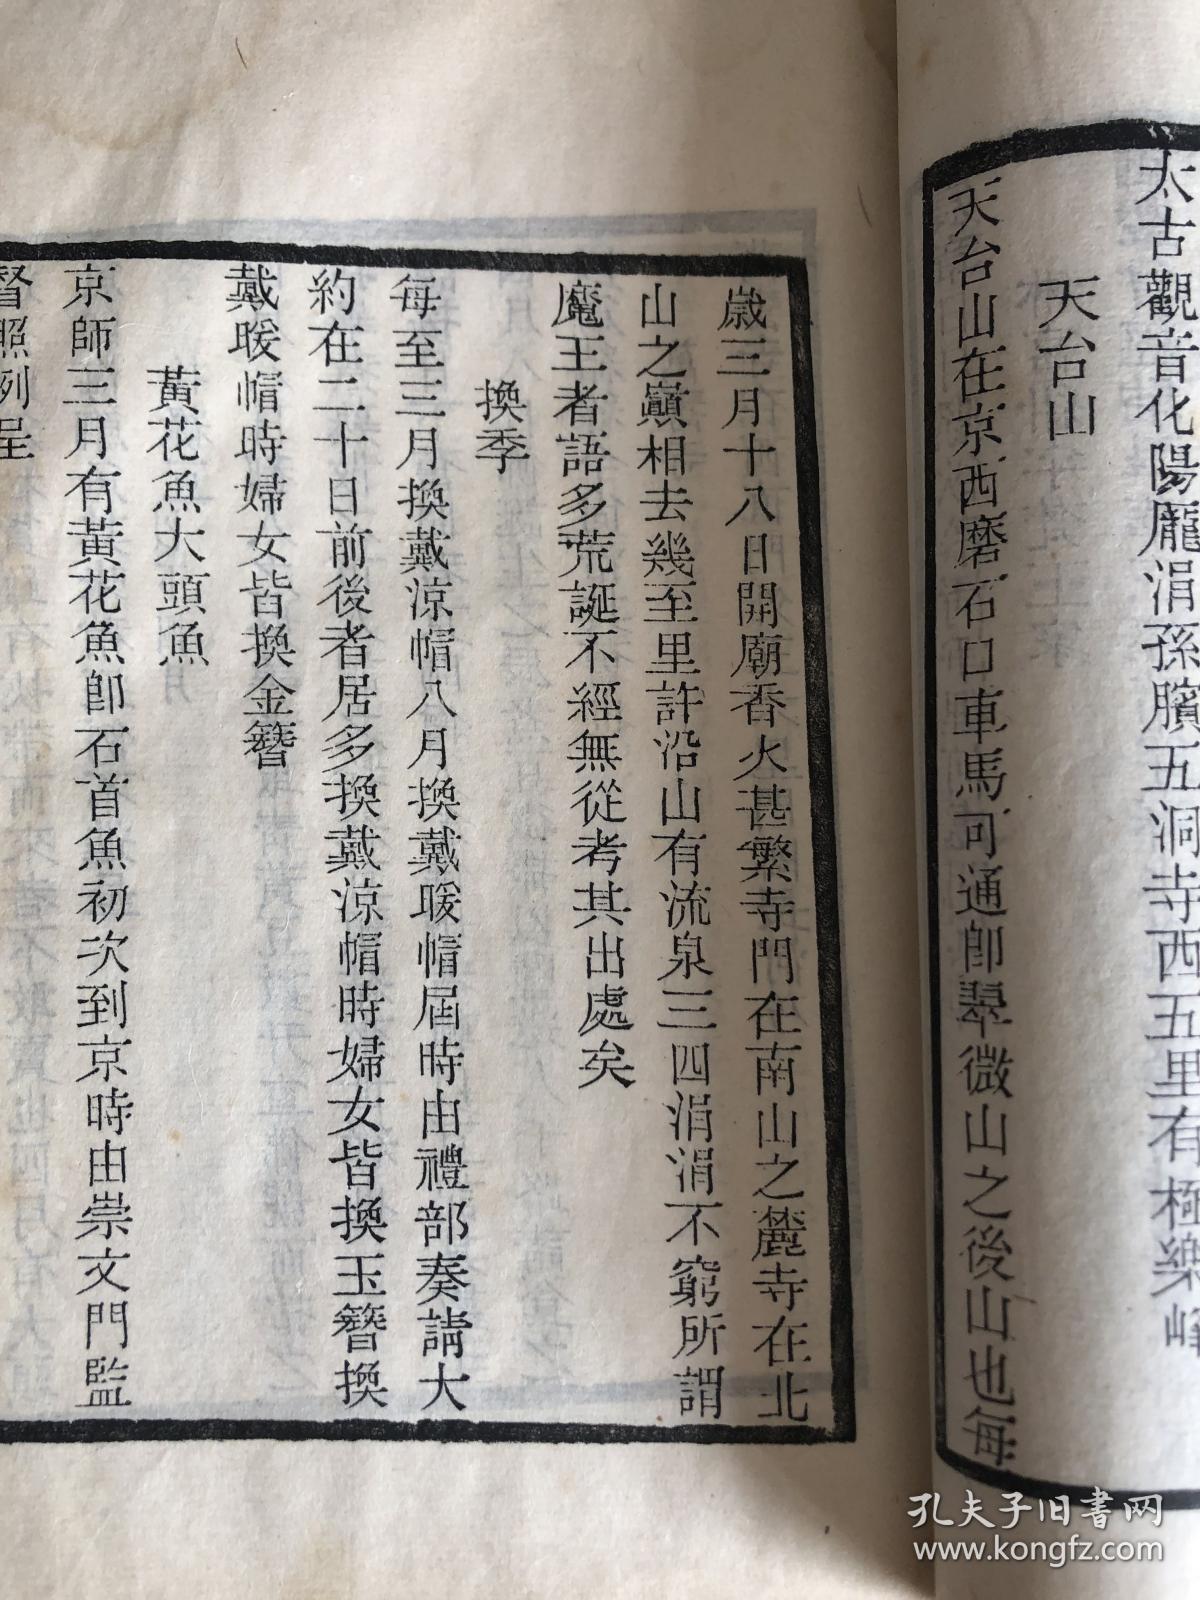 太古觀音化陽龐涓孫臏五洞寺西五里有極樂峰
天台山
天台山在京西磨石口車馬可通卽翠微山之後山也每
歲三月十八日開廟香火甚繁寺門在南山之麓寺在北
山之巔相去幾至里許沿山有流泉三四涓涓不窮所謂
魔王者語多荒誕不經無從考其出處矣
換季
每至三月換戴涼帽八月換戴暖帽屆時由禮部奏請大
約在二十日前後者居多換戴涼帽時婦女皆換玉簪換
戴暖帽時婦女皆換金簪
黃花魚大頭魚
京師三月有黃花魚卽石首魚初次到京時由崇文門監
督照例呈
孔夫子旧書网
www.kongfz.com